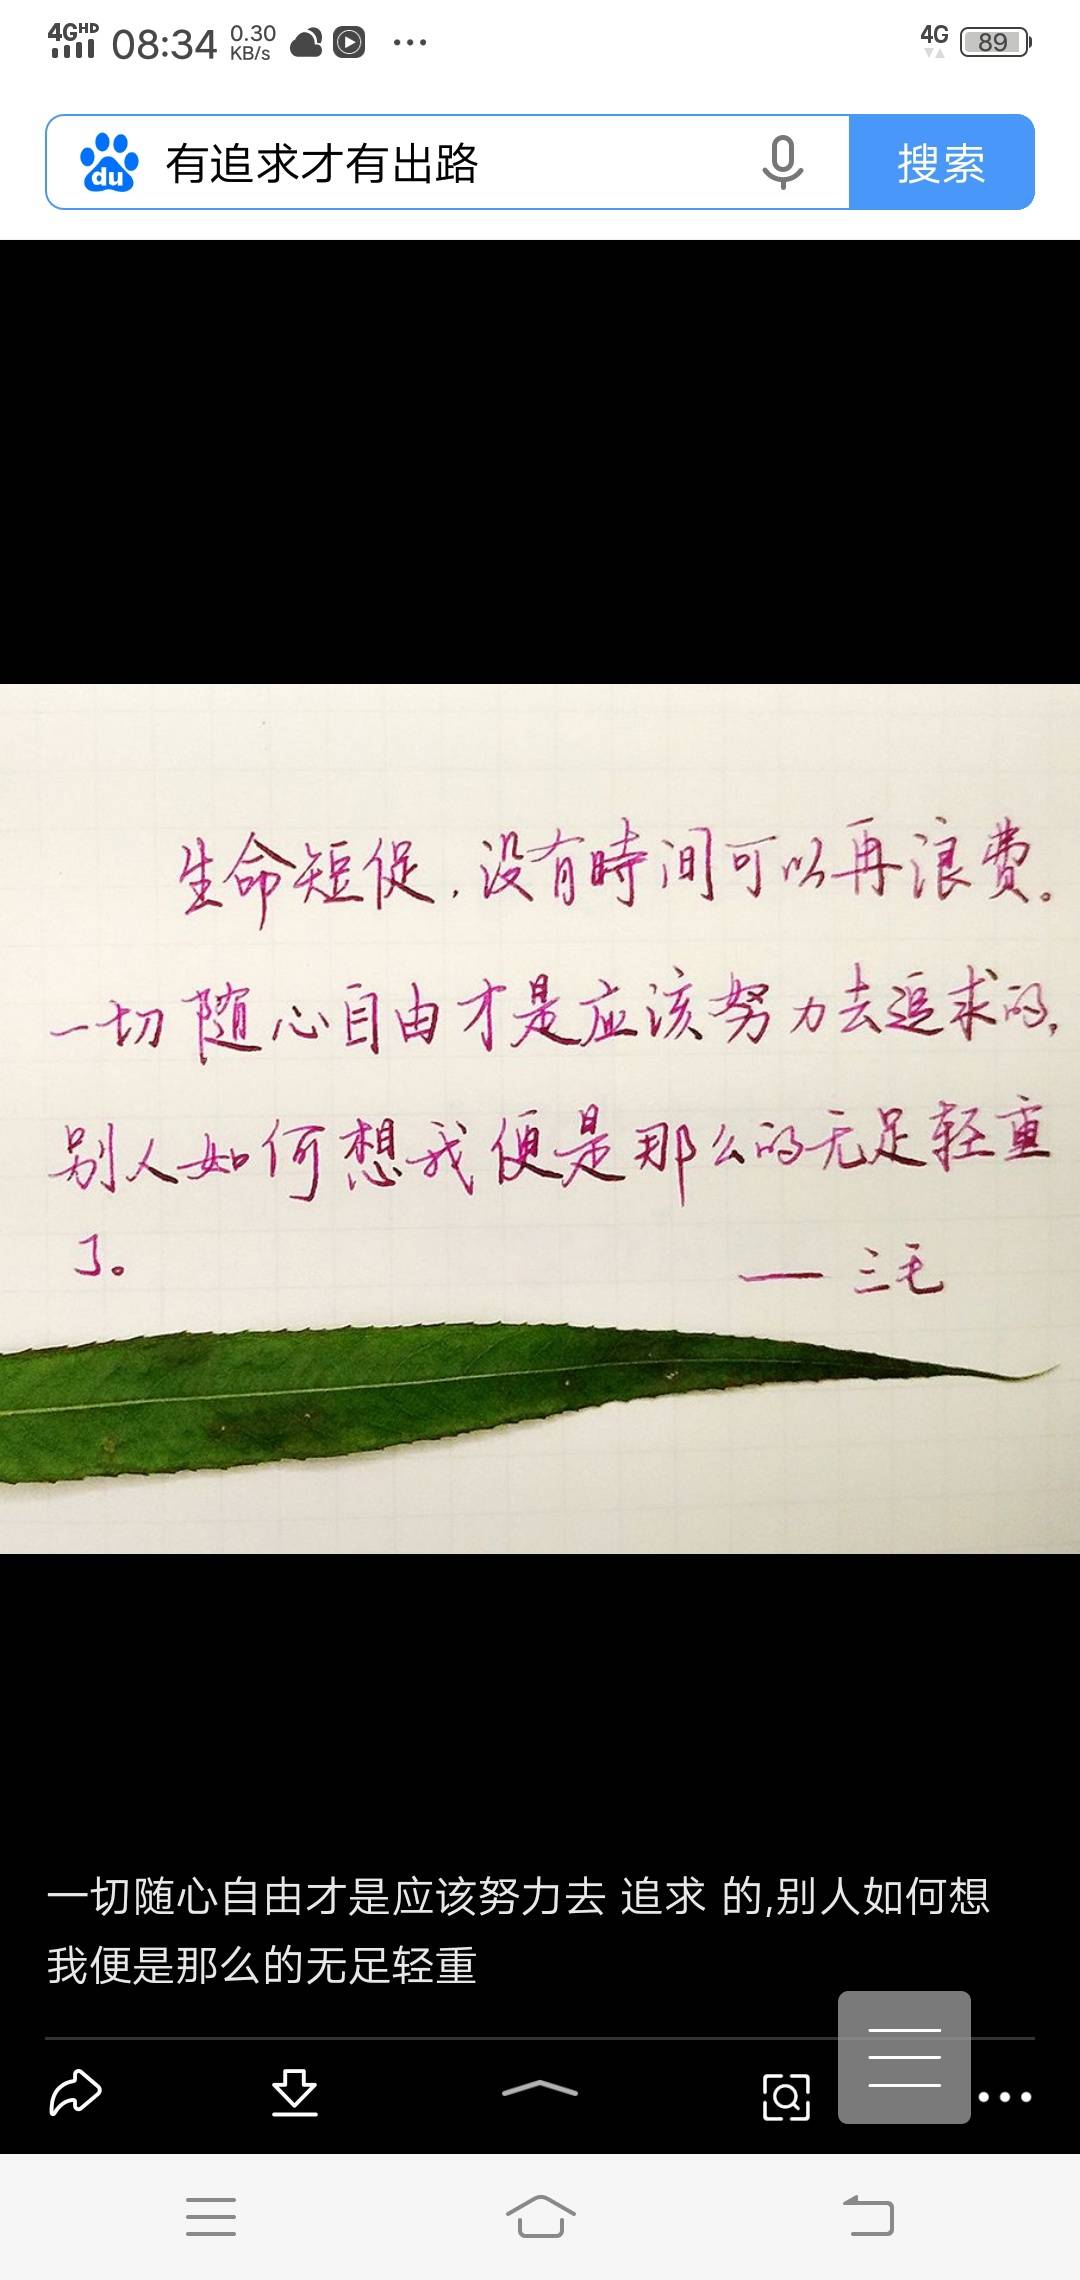 4G HD 08:34 0.30 KB/s ... 4G 89
du 有追求才有出路 搜索
生命短促,没有時间可以再浪费。
一切随心自由才是应该努力去追求的,
别人如何想我便是那么的无足轻重
了。
—— 三毛
一切随心自由才是应该努力去 追求 的,别人如何想
我便是那么的无足轻重